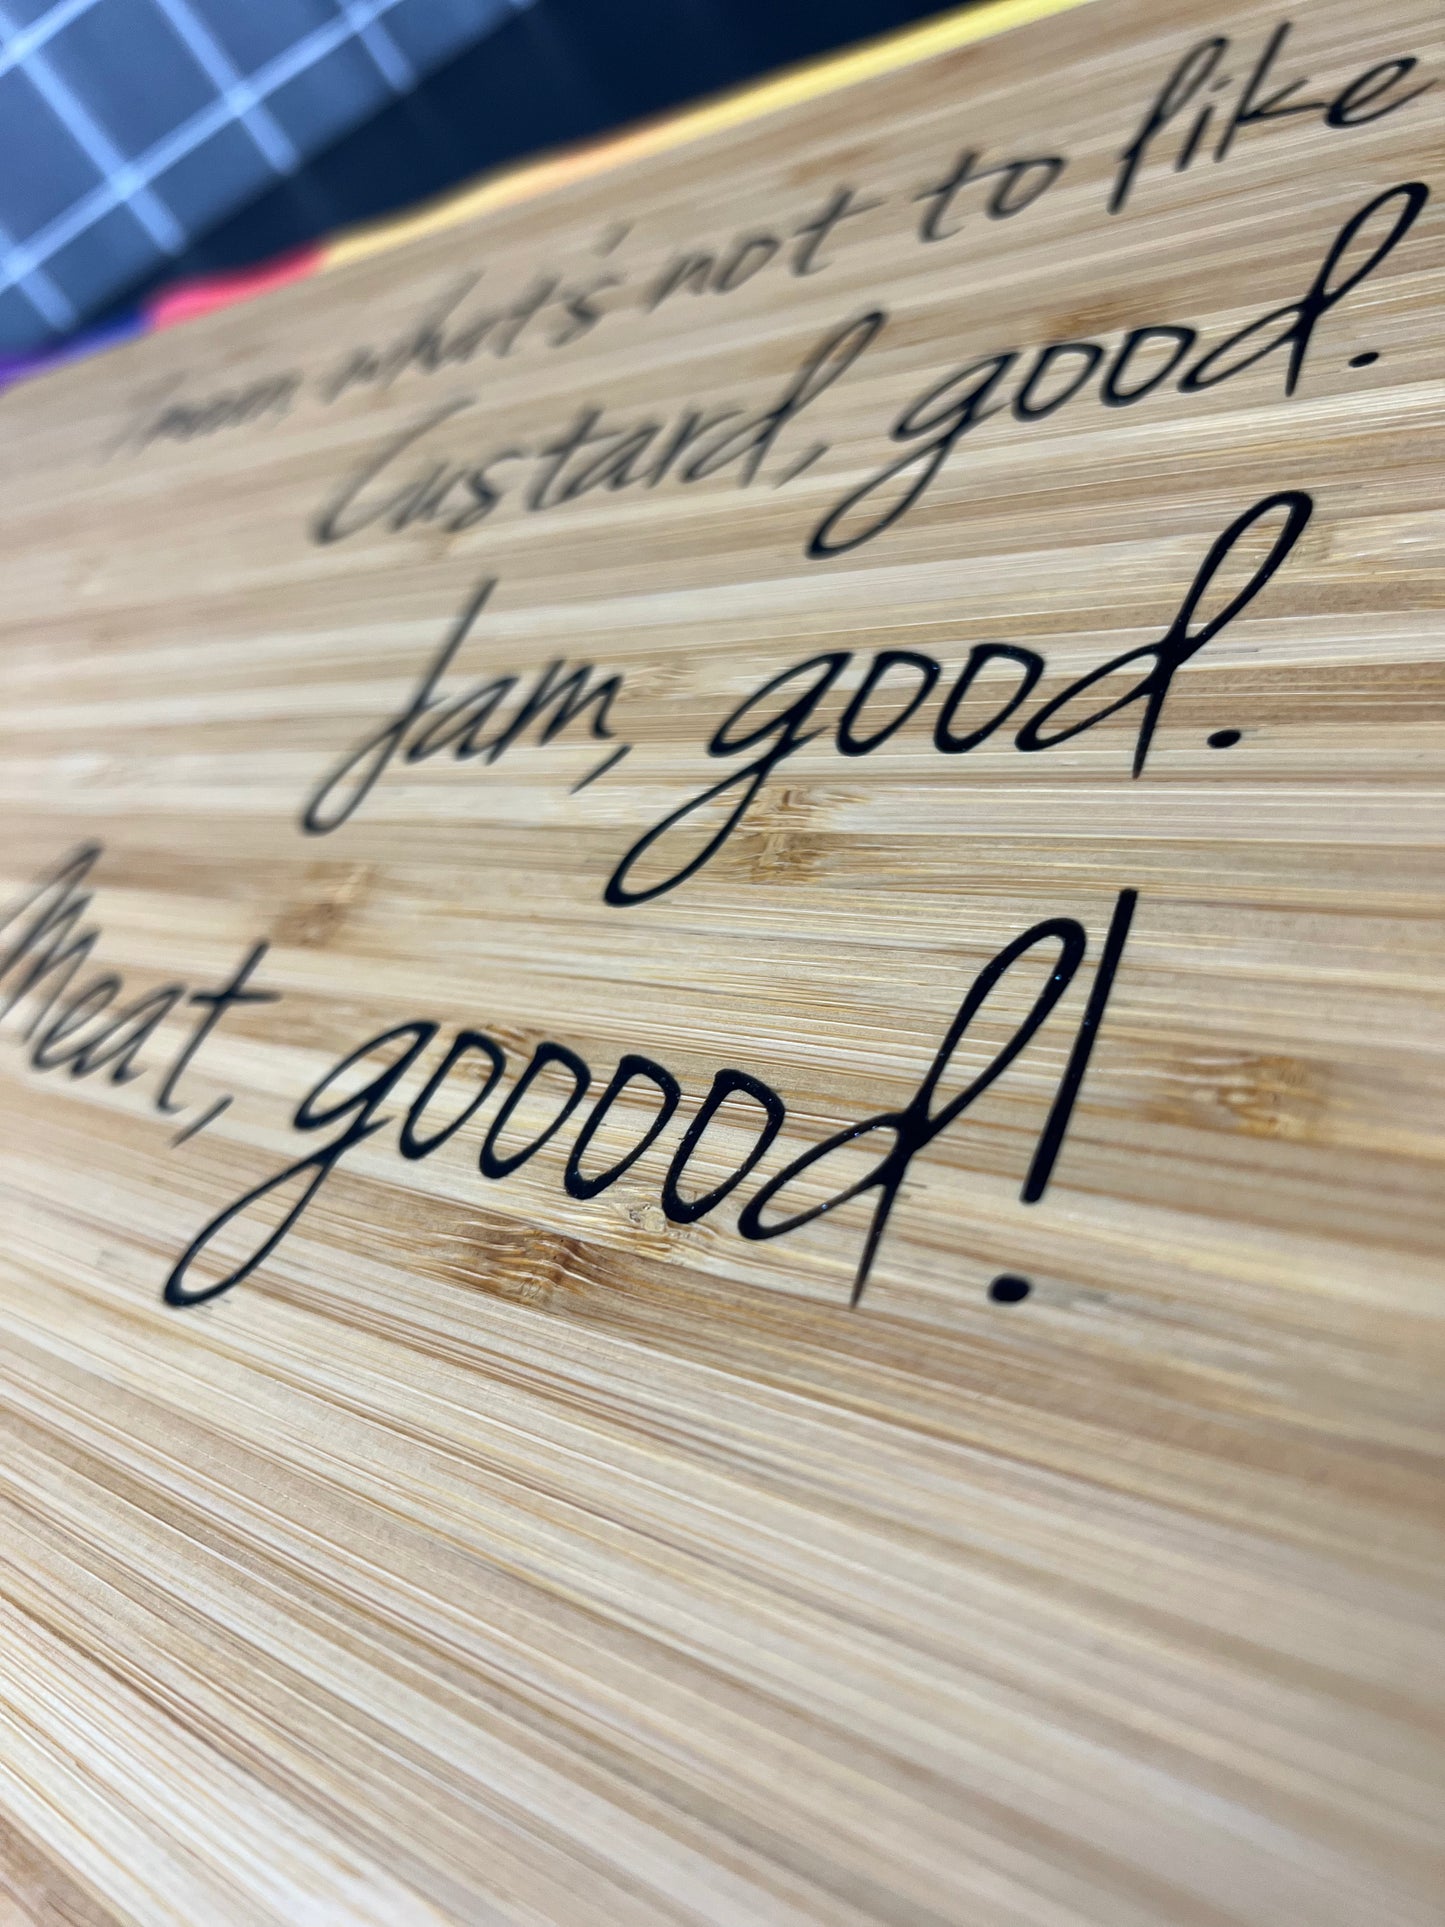 I mean, what's not to like
Custard, good.
Jam, good.
Meat, gooood!